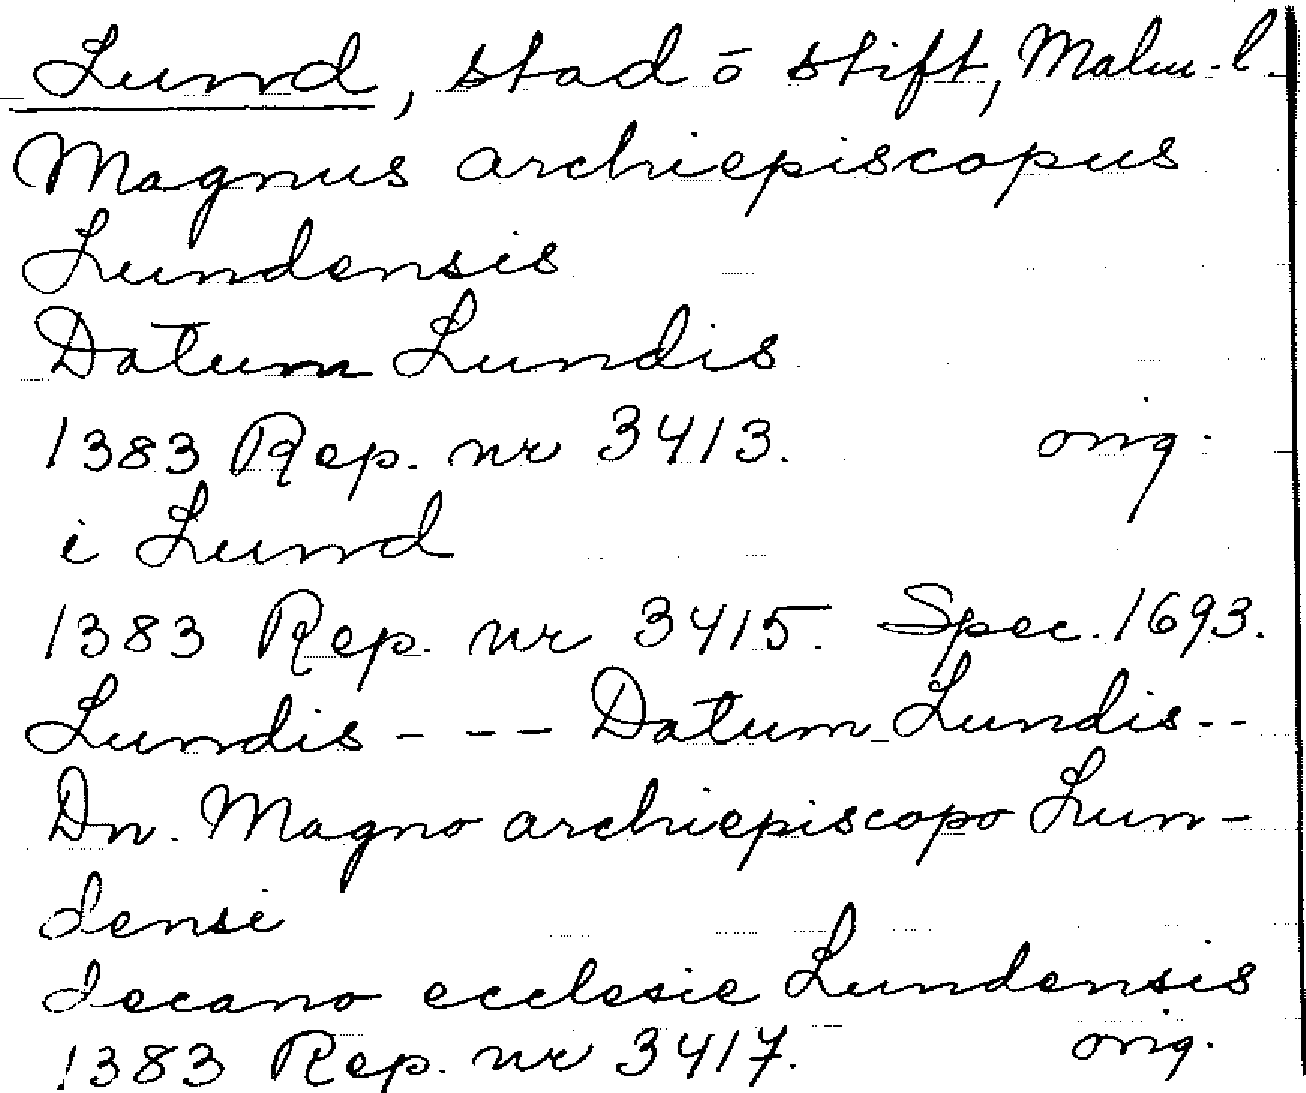 Lund, stad ō stift, Malm. l.
Magnus archiepiscopus
Lundensis
Datum Lundis
1383 Rep. nr 3413. orig.
i Lund
1383 Rep. nr 3415. Spec. 1693.
Lundis - - - Datum Lundis - -
Dn. Magno archiepiscopo Lun-
densi
decano ecclesie Lundensis
1383 Rep. nr 3417. orig.